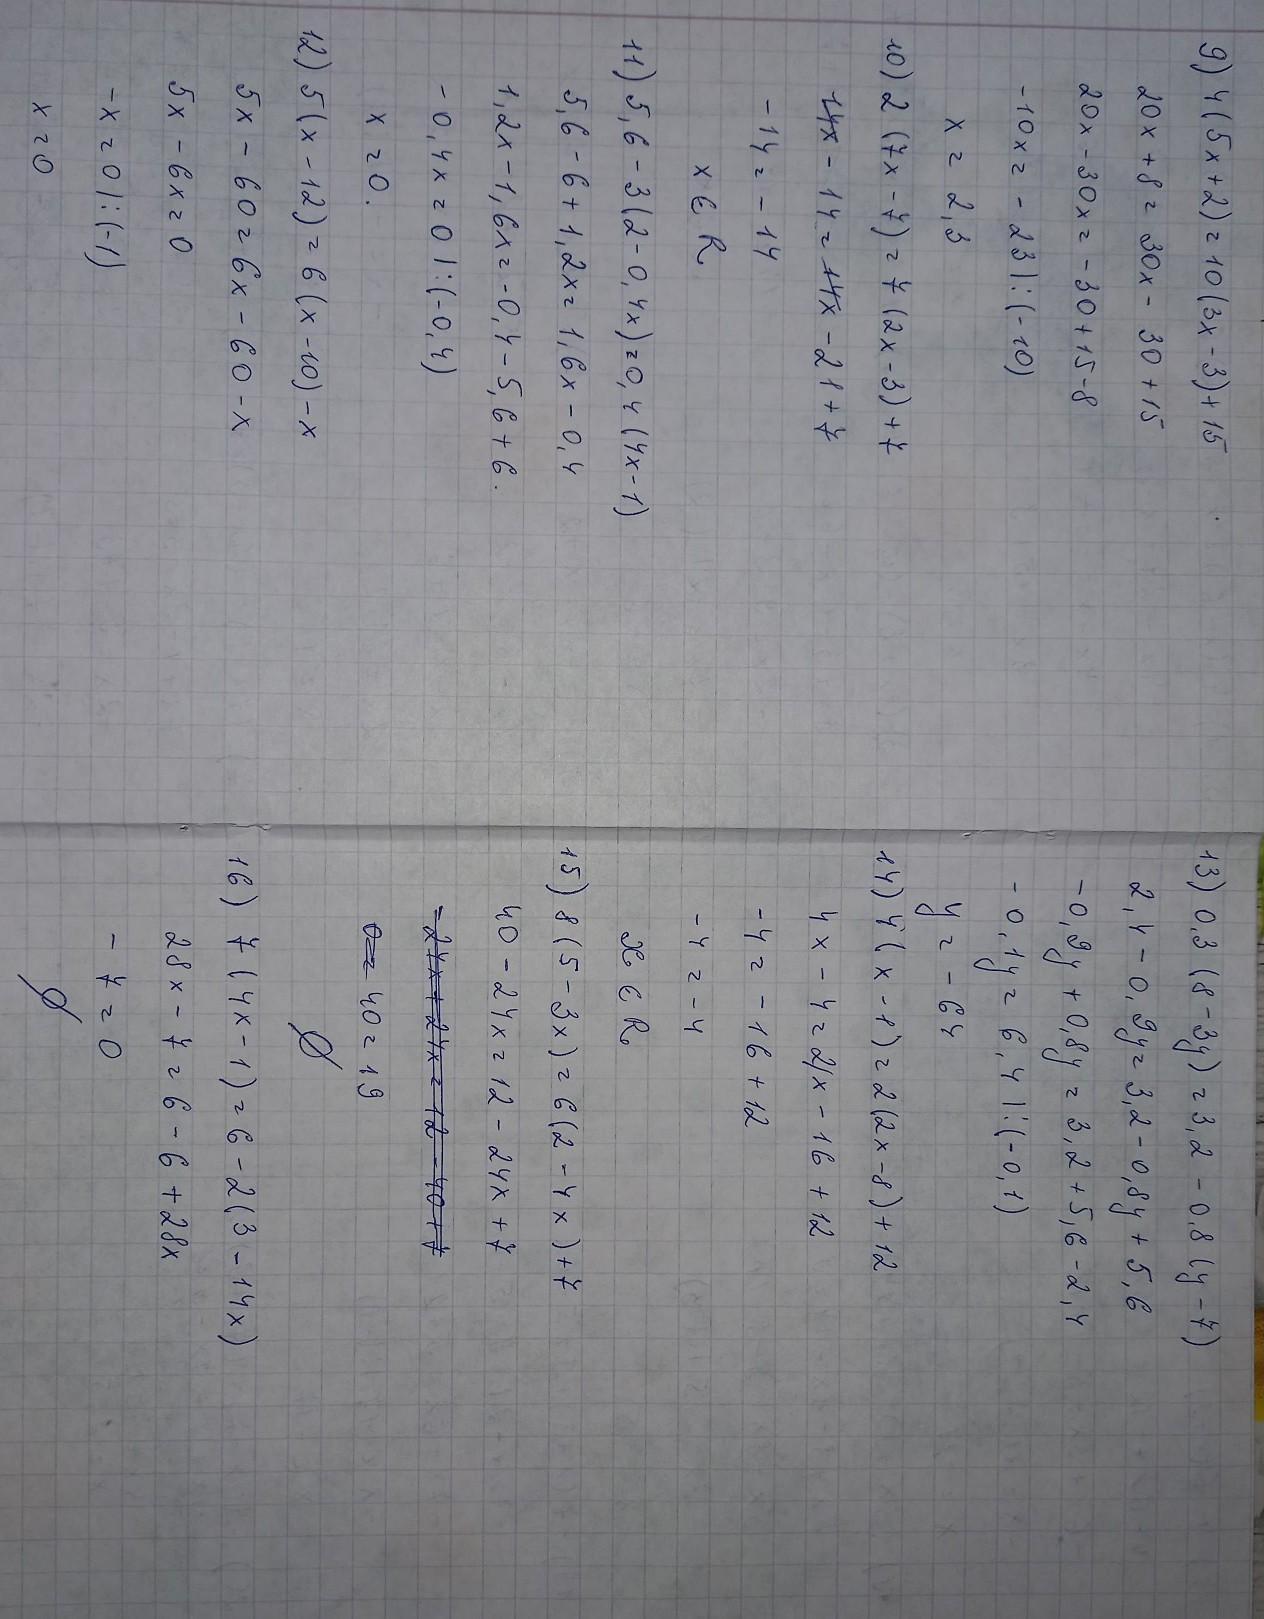 9) 4(5x+2)=10(3x-3)+15
20x+8=30x-30+15
20x-30x=-30+15-8
-10x=-23|:(-10)
x=2,3
10) 2(7x-7)=7(2x-3)+7
14x-14=14x-21+7
-14=-14
x∈R
11) 5,6-3(2-0,4x)=0,4(4x-1)
5,6-6+1,2x=1,6x-0,4
1,2x-1,6x=-0,4-5,6+6.
-0,4x=0|:(-0,4)
x=0.
12) 5(x-12)=6(x-10)-x
5x-60=6x-60-x
5x-6x=0
-x=0|:(-1)
x=0
13) 0,3(8-3y)=3,2-0,8(y-7)
2,4-0,9y=3,2-0,8y+5,6
-0,9y+0,8y=3,2+5,6-2,4
-0,1y=6,4|:(-0,1)
y=-64
14) 4(x-1)=2(2x-8)+12
4x-4=4x-16+12
-4=-16+12
-4=-4
x∈R
15) 8(5-3x)=6(2-4x)+7
40-24x=12-24x+7
-24x+24x=12-40+7
0= 40=19
∅
16) 7(4x-1)=6-2(3-14x)
28x-7=6-6+28x
-7=0
∅